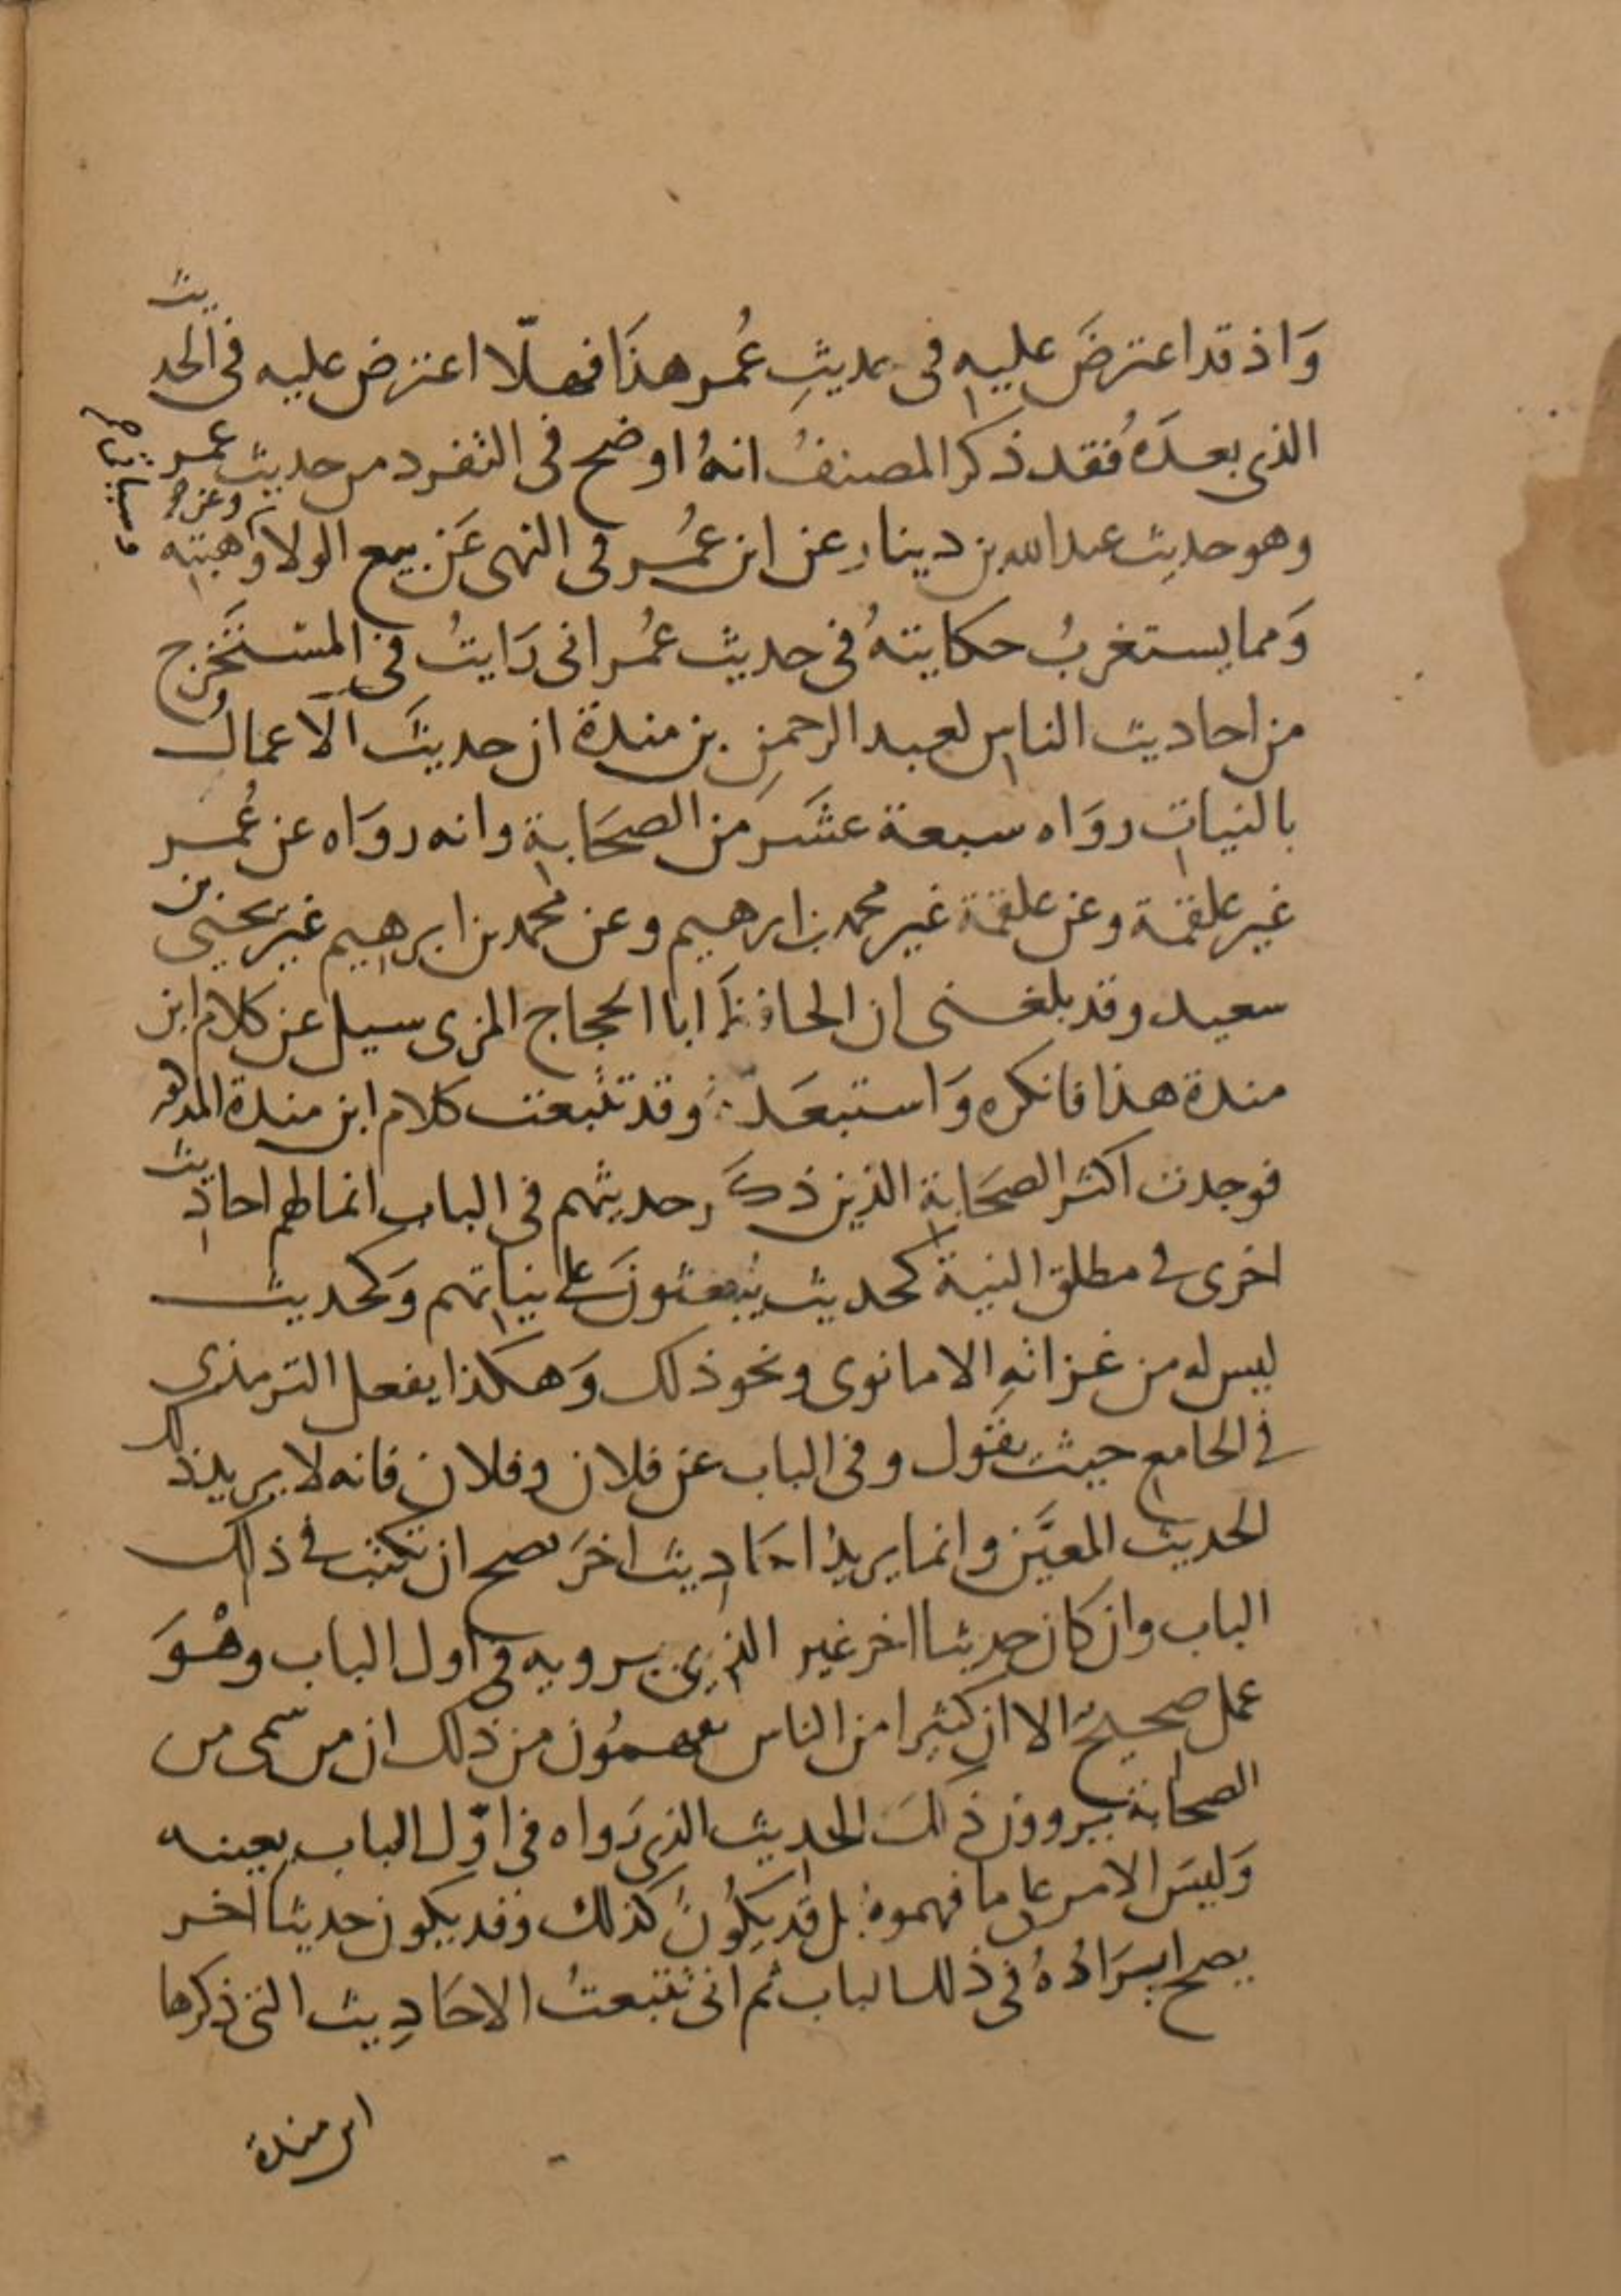 وَاذ قد اعترضَ عليه في حديثِ عُمر هذَا فهلّا اعترض عليه في الحديث
الذي بعدَهُ فقد ذكر المصنفُ انهُ اوضح في التفرد من حديث عمر
وهو حديث عبد الله بن دينارِ عن ابن عُمر في النهي عَن بيع الولا وَهبته
وَمما يستغربُ حكايتهُ في حديث عُمر اني رَايتُ في المستَخرج
من احاديث الناس لعبد الرحمنِ بن مندة ان حديثَ الاعمالُ
بالنيات روَاه سبعة عشَر مَن الصحَابة وانه روَاه عن عُمر
غير علقمة وعن علقمة غير محمد بن ابرهيم وعن محمد بن ابرهيم غير يَحيى بن
سعيد وقد بلغني ان الحافظَ ابا الحجاج المزي سيل عن كلام ابن
مندة هذا فانكره وَاستبعَده وقد تتبعت كلام ابن مندة المذكور
فوجدت اكثر الصحَابة الذين ذكَر حديثهم في الباب انما لهم احاديث
اخرى في مطلق النية كحديث يُبعثونَ على نياتهم وَكحديث
ليس له من غزاتهِ الا ما نوى ونحو ذلك وَهكذا يفعل الترمذي
في الجامع حيث يقول وفي الباب عن فلان وفلان فانه لا يريد ذلك
الحديث المعيَّن وانما يريدُ احَاديث اخرَ يصح ان تكتب في ذلك
الباب وان كان حديثا اخر غير الذي يرويه في اول الباب وهْوَ
عمل صحيحٌ الا ان كثيرا من الناس يفهمُون من ذلك ان من سمى من
الصحابة يروون ذلكَ الحديث الذي رَواه في اوّل الباب بعينه
وَليسَ الامر على ما فهموهُ بل قد يكُونُ كذلك وقد يكون حديثا اخر
يصح ايرَادُهُ في ذلك الباب ثم اني تتبعتُ الاحَادِيث التي ذكرها
ابن مندة